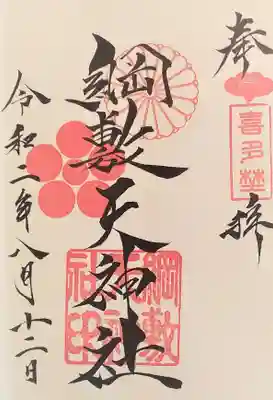 奉拝
喜多埜
綱敷天神社
綱敷天神社印
令和二年八月十二日